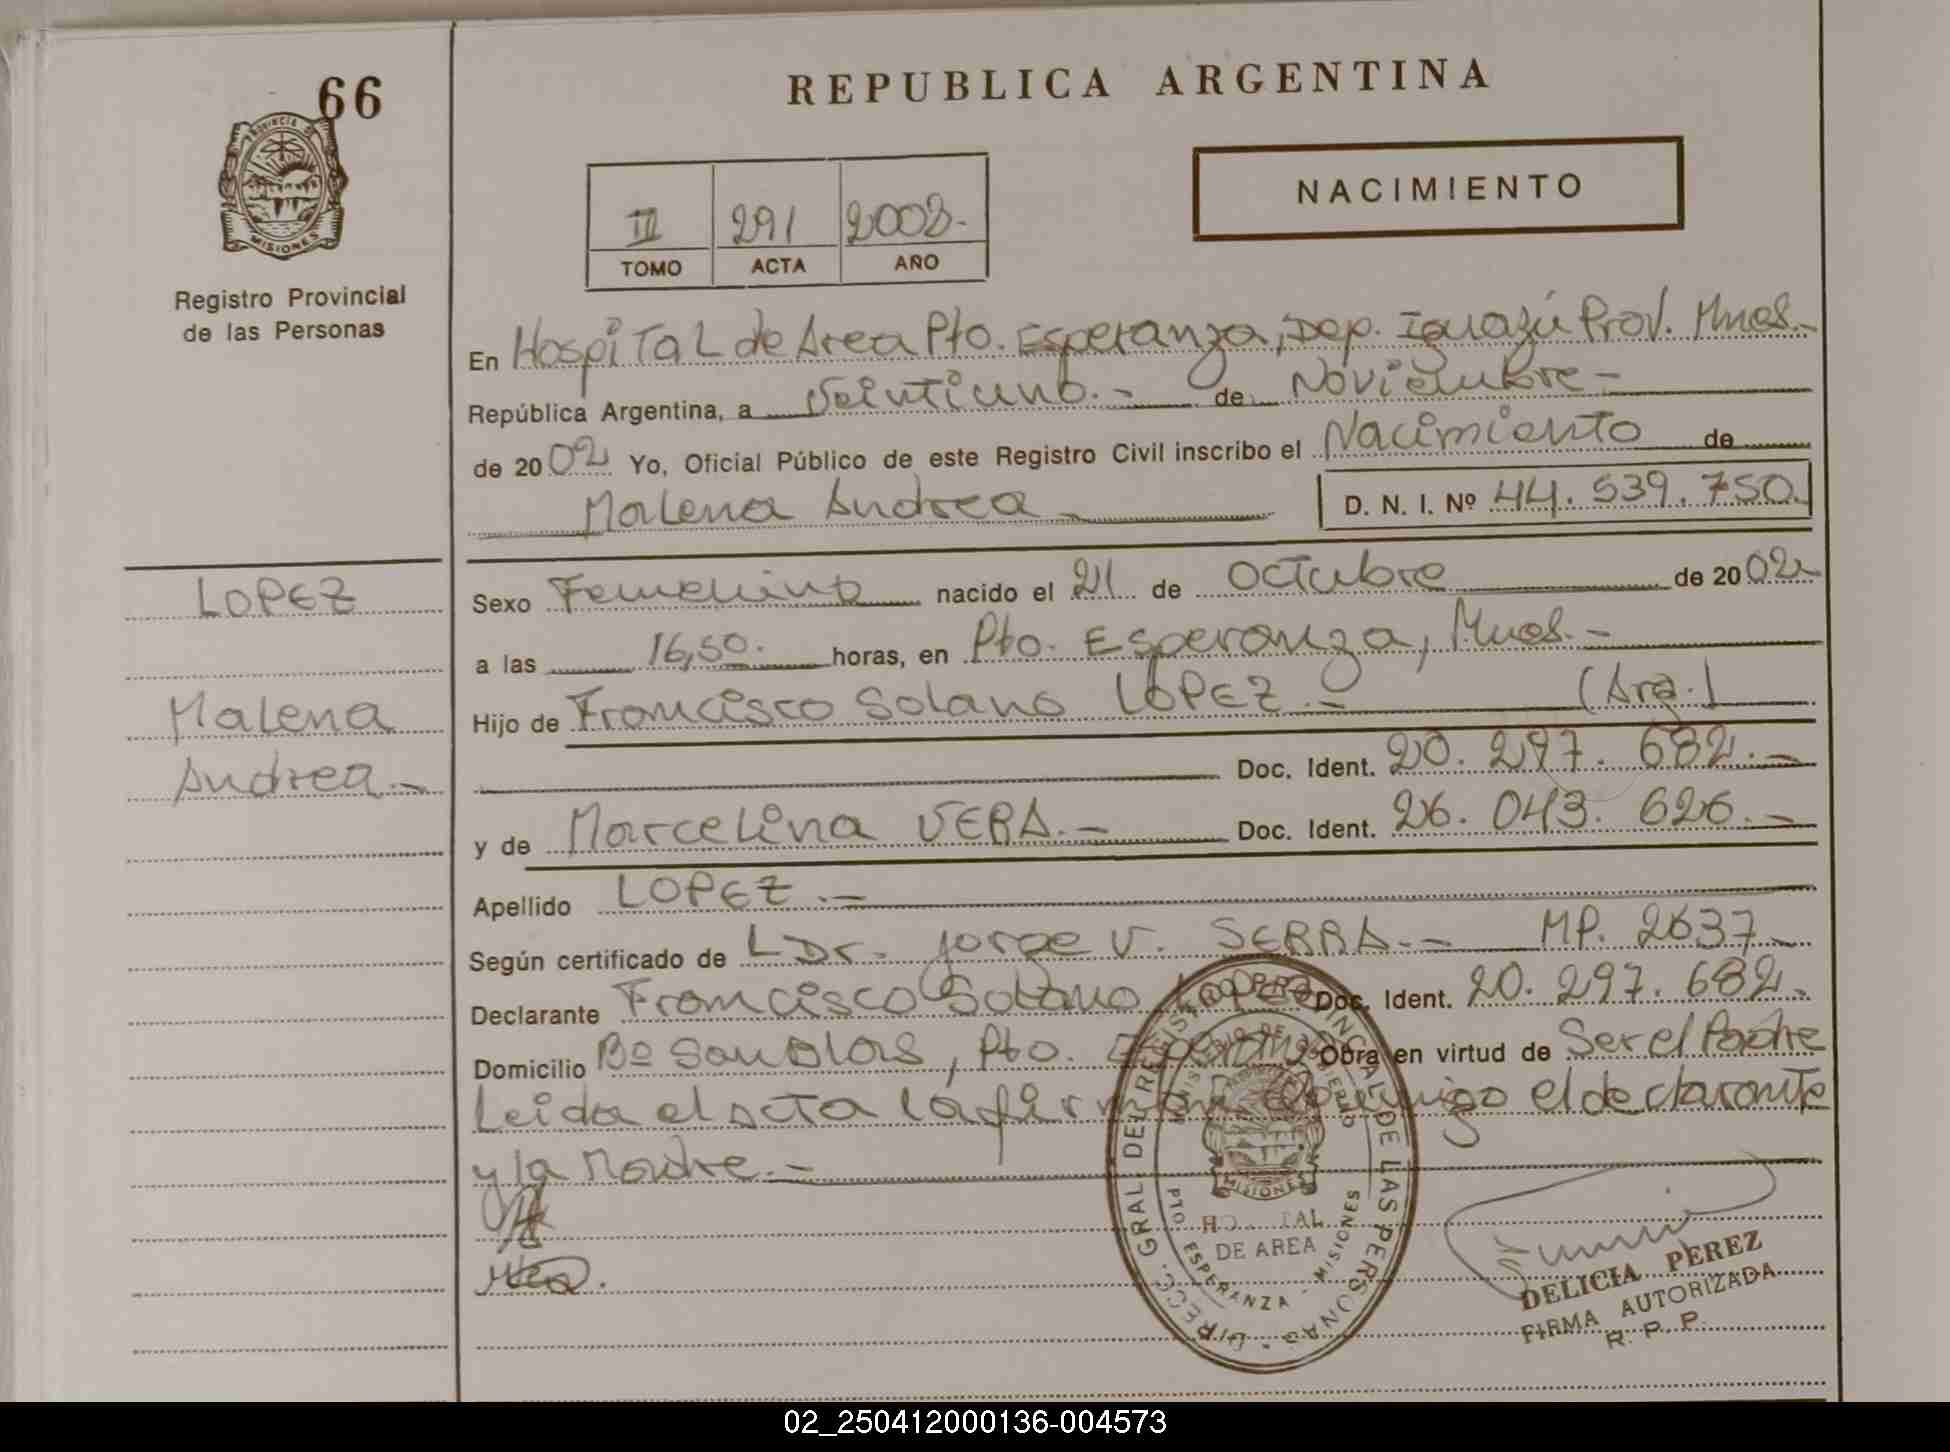 66
PROVINCIA DE
MISIONES
Registro Provincial
de las Personas
REPUBLICA ARGENTINA
NACIMIENTO
III 291 2002.-
TOMO ACTA AÑO
En Hospital de Area Pto. Esperanza, Dep. Iguazú Prov. Mnes.-
República Argentina, a Veintiuno.- de Noviembre-
de 2002 Yo, Oficial Público de este Registro Civil inscribo el Nacimiento de
Malena Andrea D. N. I. Nº 44.539.750.
LOPEZ
Malena
Andrea.-
Sexo Femenino nacido el 21 de Octubre de 2002
a las 16,50. horas, en Pto. Esperanza, Mnes.-
Hijo de Francisco Solano LOPEZ.- (Arg.)
Doc. Ident. 20.297.682.-
y de Marcelina VERA.- Doc. Ident. 26.043.626.-
Apellido LOPEZ.-
Según certificado de Dr. Jorge V. SERRA.- MP. 2637-
Declarante Francisco Solano Lopez Doc. Ident. 20.297.682.
Domicilio Bº San Blas, Pto. Esperanza Obra en virtud de Ser el Padre
Leida el acta la firman Conmigo el declarante
y la Madre.-
DIRECC. GRAL DEL REGISTRO PROVINCIAL DE LAS PERSONAS
MISIONES
DE AREA
PTO. ESPERANZA - MISIONES
DELICIA PEREZ
FIRMA AUTORIZADA
R. P. P.
02_250412000136-004573